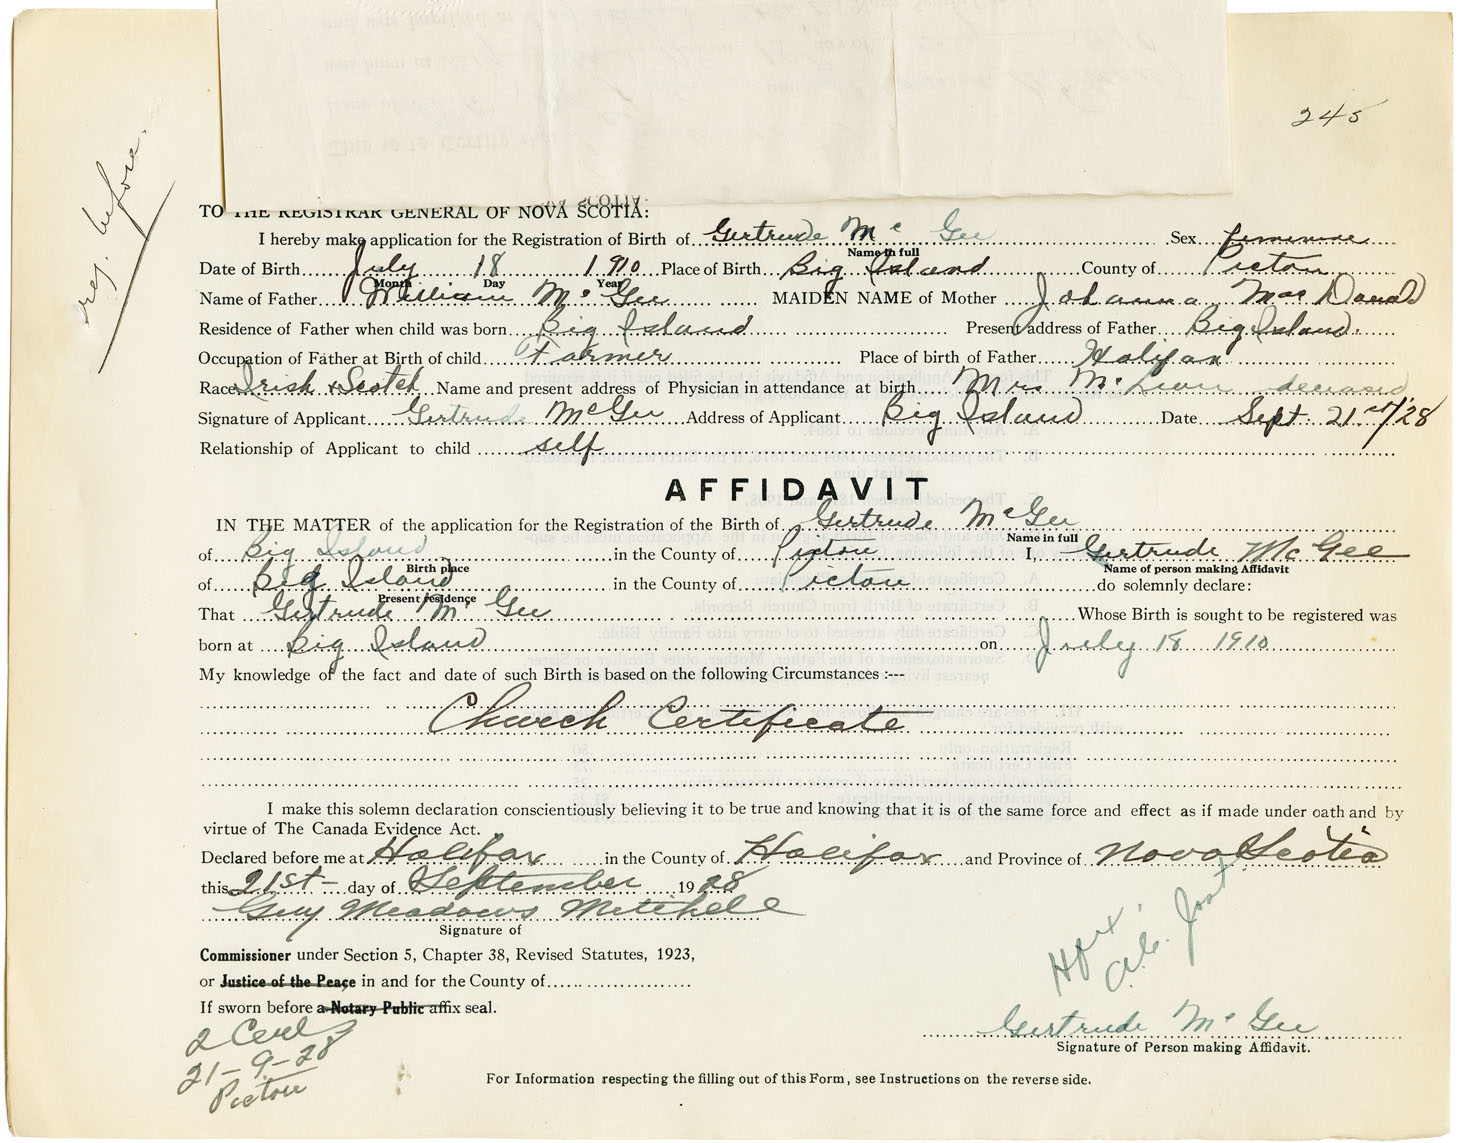 245
reg. before.
TO THE REGISTRAR GENERAL OF NOVA SCOTIA:
I hereby make application for the Registration of Birth of Gertrude Mc Gee Sex feminine
Name in full
Date of Birth July 18 1910 Place of Birth Big Island County of Picton
Month Day Year
Name of Father William Mc Gee MAIDEN NAME of Mother Johanna Mac Donald
Residence of Father when child was born Big Island Present address of Father Big Island.
Occupation of Father at Birth of child Farmer Place of birth of Father Halifax
Race Irish & Scotch Name and present address of Physician in attendance at birth Mrs Mc deceased
Signature of Applicant Gertrude McGee Address of Applicant Big Island Date Sept. 21st/28
Relationship of Applicant to child self
AFFIDAVIT
IN THE MATTER of the application for the Registration of the Birth of Gertrude McGee
Name in full
of Big Island in the County of Picton I, Gertrude McGee
Birth place Name of person making Affidavit
of Big Island in the County of Picton do solemnly declare:
Present residence
That Gertrude Mc Gee Whose Birth is sought to be registered was
born at Big Island on July 18 1910
My knowledge of the fact and date of such Birth is based on the following Circumstances :---
Church Certificate
I make this solemn declaration conscientiously believing it to be true and knowing that it is of the same force and effect as if made under oath and by
virtue of The Canada Evidence Act.
Declared before me at Halifax in the County of Halifax and Province of Nova Scotia
this 21st day of September 1928
Guy Meadows Mitchell
Signature of
Commissioner under Section 5, Chapter 38, Revised Statutes, 1923,
or Justice of the Peace in and for the County of
If sworn before a Notary Public affix seal.
2 Cert
21-9-28
Picton
Hfx
Gertrude Mc Gee
Signature of Person making Affidavit.
For Information respecting the filling out of this Form, see Instructions on the reverse side.